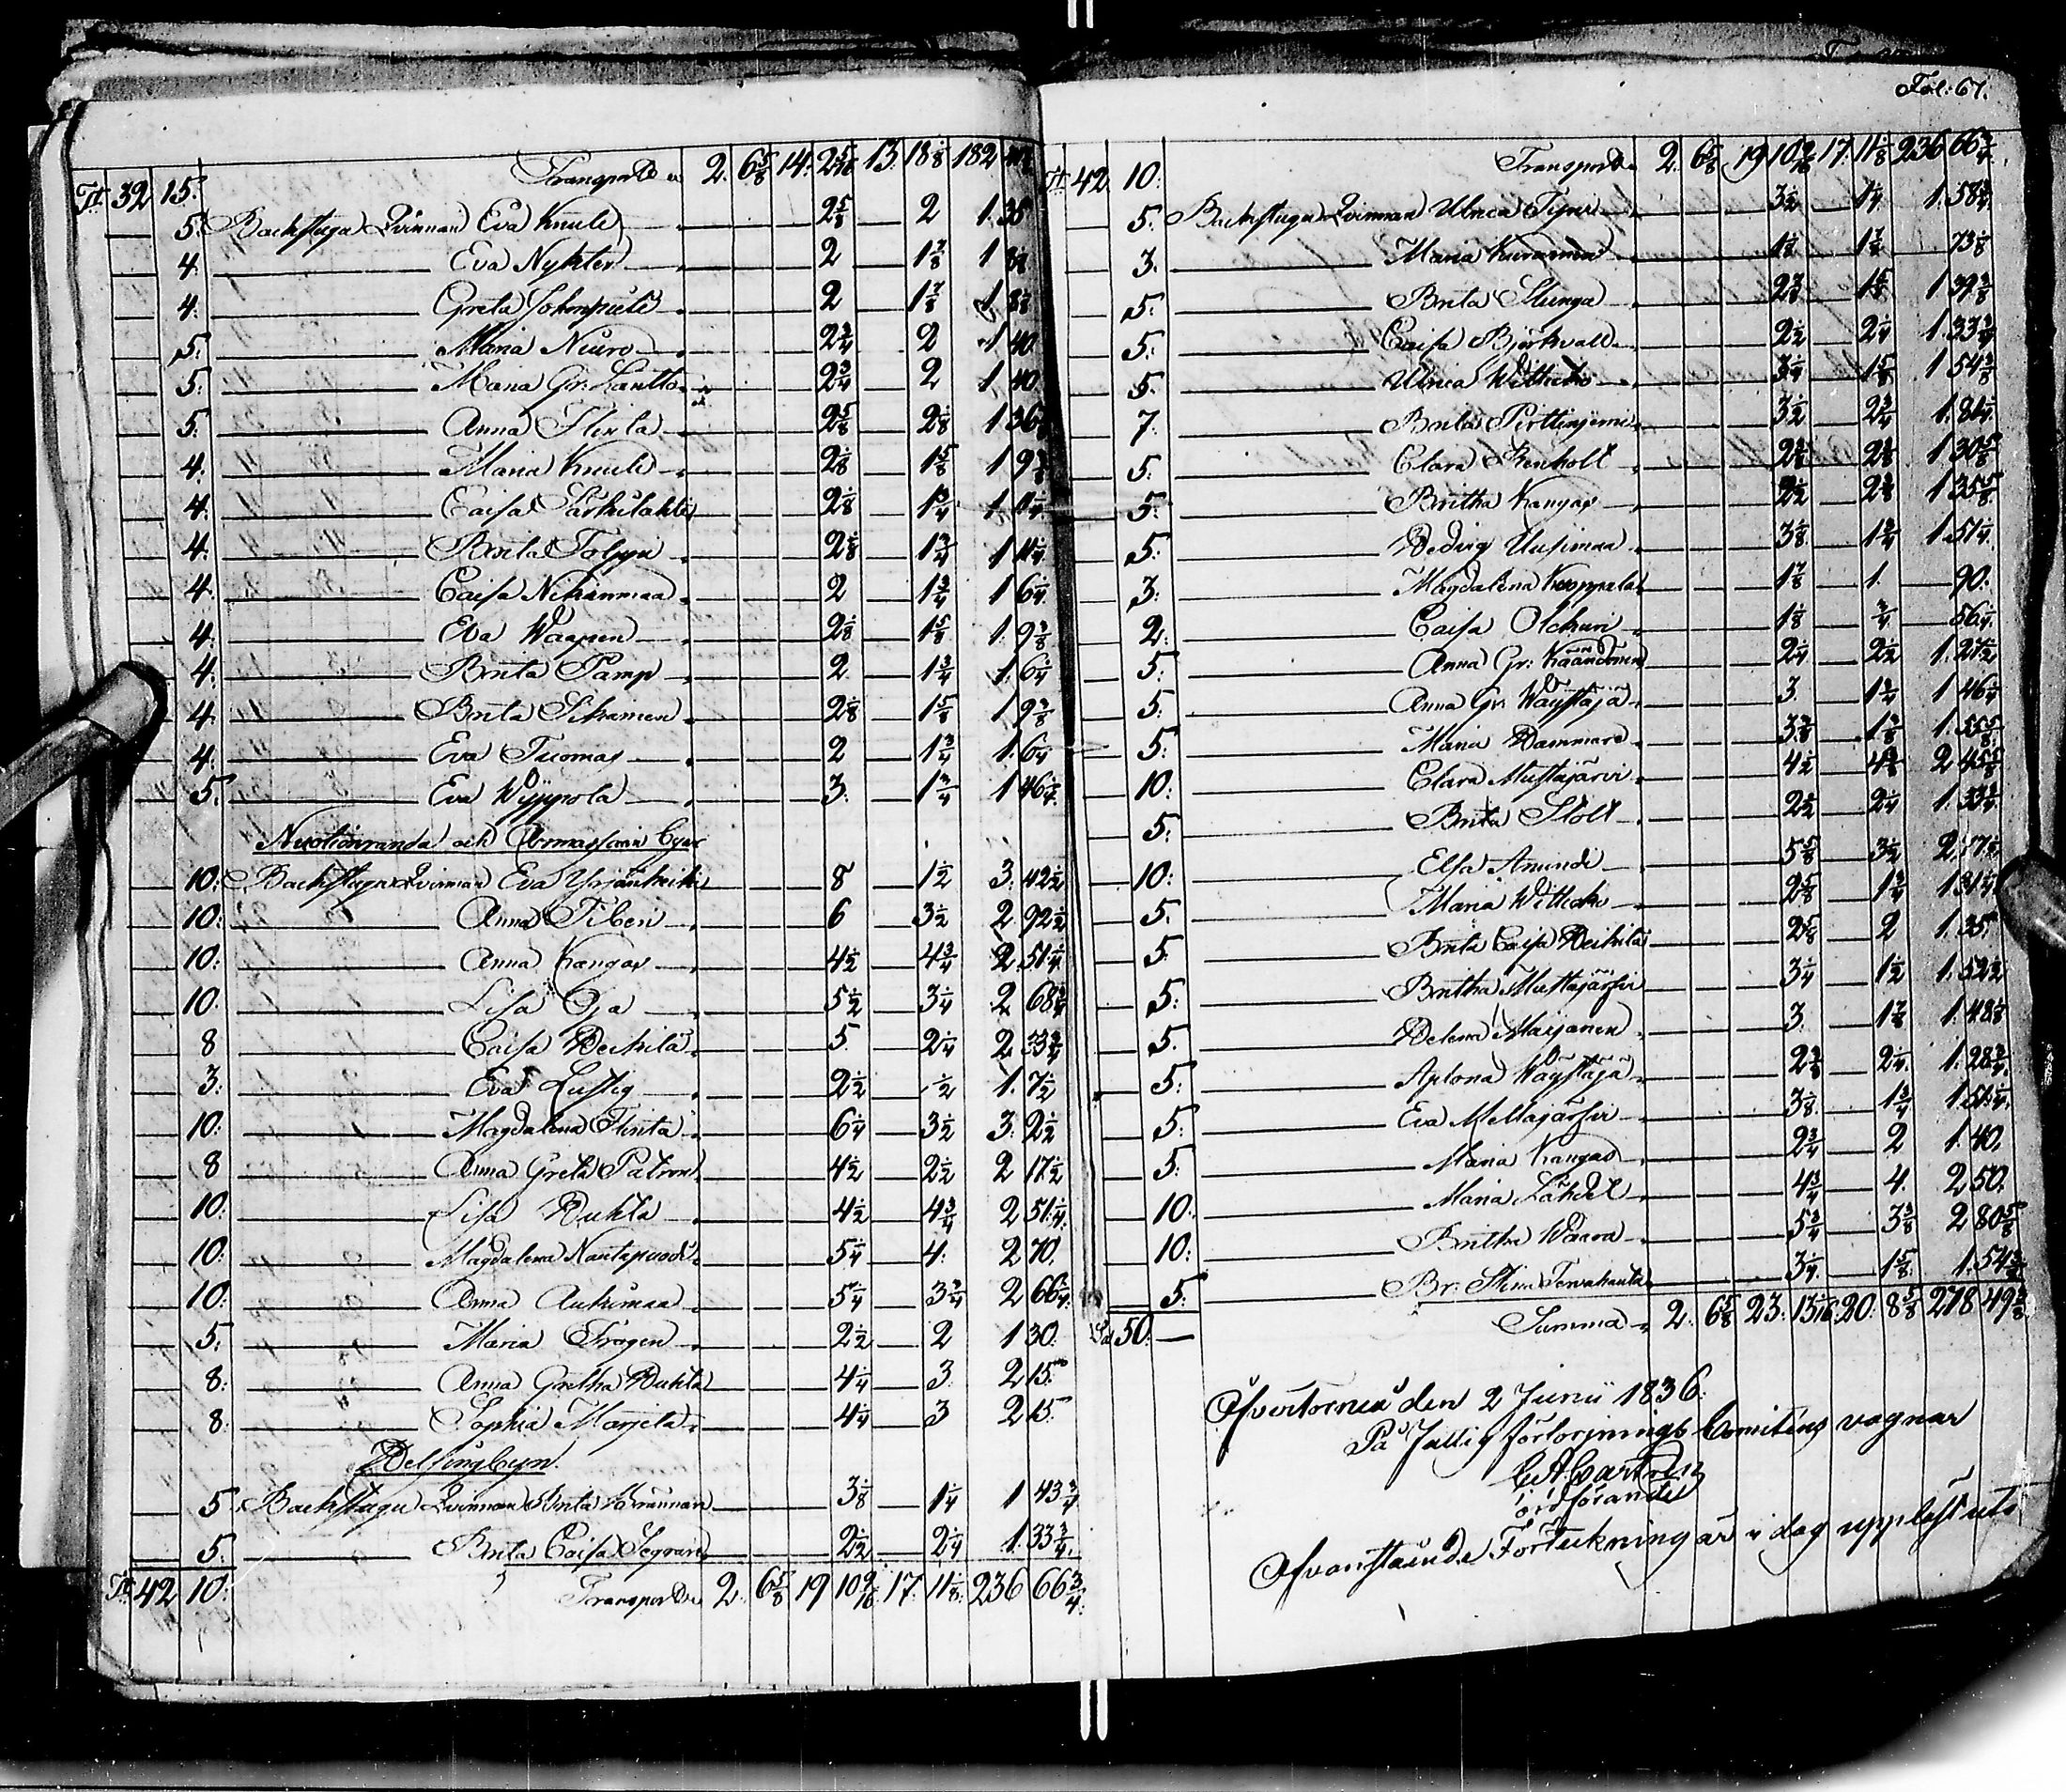 Transporte 2. 6 5/8 14. 2 5/16 13. 18 1/8 182
Tt 32 15.
5. Backstugu Qvinnan Eva Knuuti 2 5/8 2 1. 35
4. Eva Nykter 2 1 7/8 1 8 1/8
4. Greta 2 1 7/8 1. 8 1/8
5. Maria Niuro 2 3/4 2 1 40
5. Maria Gr. Lantto 2 3/4 2 1 40.
5. Anna 2 5/8 2 1/8 1 36
4. Maria Knuuti 2 1/8 1 5/8 1 9 3/8
4. Caisa Särkilahti 2 1/8 1 3/4 1
4. Brita Tolppi 2 1/8 1 3/4 1 11 1/4
4. Caisa Niskanmaa 2 1 3/4 1 6 1/4
4. Eva Waapen 2 1/8 1 5/8 1. 9 3/8
4. Brita Pamp 2 1 3/4 1. 6 1/4
4. Brita 2 1/8 1 5/8 1 9 3/8
4. Eva Tuomas 2 1 3/4 1. 6 1/4
5. Eva Wyppola 3. 1 3/4 1 46 1/4
Nuotioranda och Armassaari Byar
10. Backstugu Qvinnan Eva Yrjänheiki 8 1 1/2 3. 42 1/2
10. Anna 6 3 1/2 2 92 1/2
10. Anna Kangas 4 1/2 4 3/4 2 51 1/4
10. Lisa Oja 5 1/2 3 1/4 2 68 3/4
8 Caisa Heikilä 5. 2 1/4 2 33 3/4
3. Eva Lustig 2 1/2 1/2 1. 7 1/2
10. Magdalena Hinta 6 1/4 3 1/2 3. 2 1/2
8 Anna Greta Patron 4 1/2 2 1/2 2 17 1/2
10. Lisa Huhta 4 1/2 4 3/4 2 51 1/4
10. Magdalena Nautapuodi 5 1/4 4. 2 70.
10. Anna Aukimaa 5 1/4 3 3/4 2 66 1/4
5. Maria Frogen 2 1/2 2 1 30.
8. Anna Gretha Huhta 4 1/4 3. 2 15.
8. Sophia Marjeta 4 1/4 3 2 15.
Helsingbyn.
5. Backstugu Qvinnan Brita 3 1/8 1 1/4 1 43 3/4
5. Brita Caisa Segvare 2 1/2 2 1/4 1. 33 3/4
Tt 42 10. Transporte 2. 6 5/8 19 10 9/16 17. 11 1/8 236 66 3/4
Fol: 67.
Transport 2. 6 5/8 19 10 9/16 17. 11 1/8 236 66 3/4
Tt 42 10.
5. Backstugu Qvinnan Ulrica Tyni 3 1/2 1 1/4 1. 58 3/4
3. Maria 1 7/8 73 1/8
5. Brita Slunga 2 7/8 1 5/8 1 39 3/8
5. Caisa Björkvall 2 1/2 2 1/4 1. 33 3/4
5. Ulrica Wittickо 3 1/4 1 5/8 1 54 3/8
7. Brita Pirttiniemi 3 1/2 2 3/4 1. 81 1/4
5. Clara Stenholt 2 3/8 2 3/8 1 30 5/8
5. Britha Kangas 2 1/2 2 3/8 1 35 5/8
5. Hedvig Uusimaa 3 1/8 1 3/4 1 51 1/4
3. Magdalena Koppala 1 7/8 1. 90.
2. Caisa Olckuri 1 1/8 3/4 56 1/4
5. Anna Gr: 2 1/4 2 1/2 1. 27 1/2
5. Anna Gr. Wäystäjä 3 1 3/4 1 46 1/4
5. Maria Hammare 3 3/8 1 3/8 1. 55 5/8
10. Clara Mustajärvi 4 1/2 4 3/8 2 45 5/8
5. Brita Stolt 2 1/2 2 1/4 1. 33 3/4
10. Elsa Amindi 5 5/8 3 1/2 2. 77 1/2
5. Maria Witicko 2 5/8 1 3/4 1 31 1/4
5. Brita Caisa Heikilä 2 5/8 2 1. 35.
5. Britha Mustajärfvi 3 1/4 1 1/2 1. 52 1/2
5. Helena Maijanen 3. 1 7/8 1. 48 1/8
5. Aplona Wäystäjä 2 3/8 2 1/4 1. 28 3/4
5. Eva Meltajärfvi 3 1/8 1 3/4 1 51 1/4
5. Maria Kangas 2 3/4 2 1. 40.
10. Maria Lahdet 4 3/4 4. 2 50.
10. Britha Waara 5 3/4 3 3/8 2 80 5/8
5. Br: Stina Tervahauta 3 1/4 1 5/8 1. 54 3/8
50. Summa 2. 6 5/8 23. 13 1/16 20. 8 5/8 278 49 3/8
Öfvertorneå den 2 Junii 1836.
På fattig försörjnings Comiténs vägnar
ordförande
Ofvanstående Förtekning är i dag uppläst uti